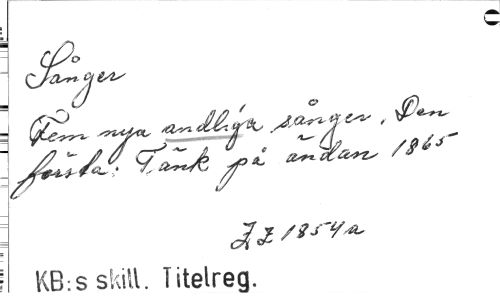 Sånger
Fem nya andliga sånger. Den
första: Tänk på ändan 1865
ZZ 1854a
KB:s skill. Titelreg.